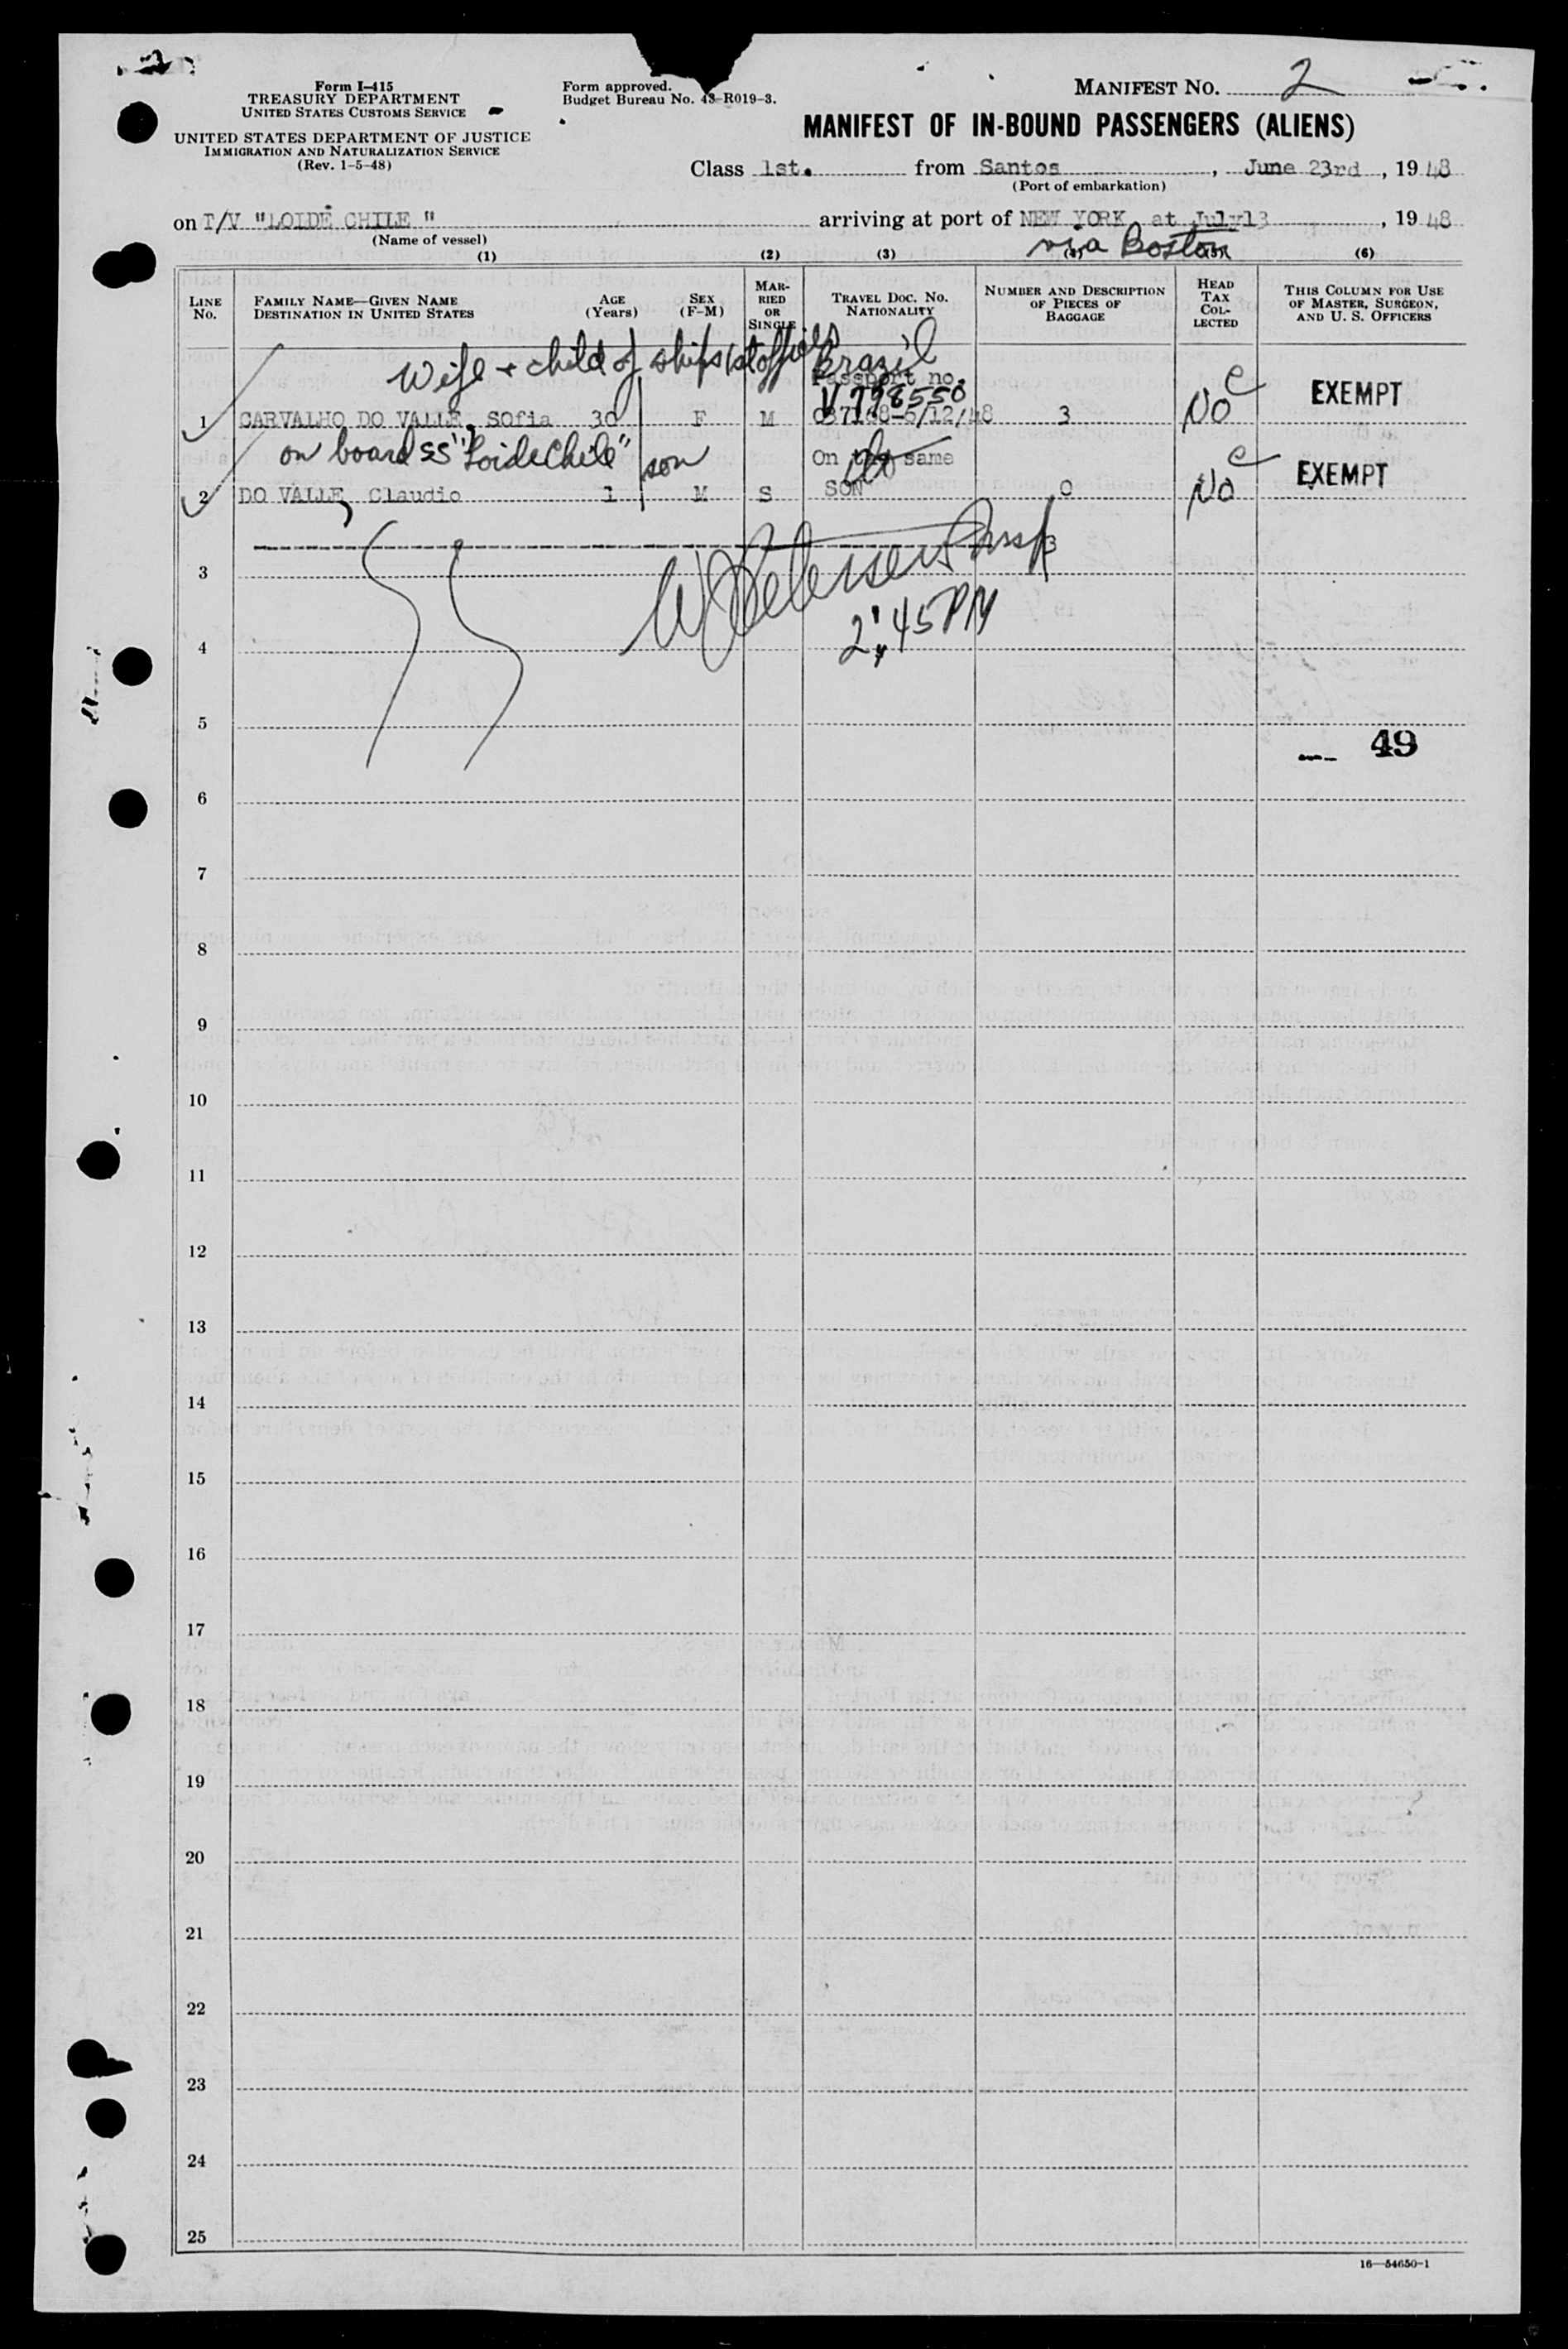 Form I-415
TREASURY DEPARTMENT
UNITED STATES CUSTOMS SERVICE
UNITED STATES DEPARTMENT OF JUSTICE
IMMIGRATION AND NATURALIZATION SERVICE
(Rev. 1-5-48)
Form approved.
Budget Bureau No. 43-R019-3.
MANIFEST NO. 2
MANIFEST OF IN-BOUND PASSENGERS (ALIENS)
Class 1st. from Santos, June 23rd, 1948
(Port of embarkation)
on T/V "LOIDE CHILE" arriving at port of NEW YORK at July 13, 1948
(Name of vessel)
via Boston
(1) (2) (3) (4) (5) (6)
LINE No. FAMILY NAME—GIVEN NAME DESTINATION IN UNITED STATES AGE (Years) SEX (F-M) MARRIED OR SINGLE TRAVEL DOC. NO. NATIONALITY NUMBER AND DESCRIPTION OF PIECES OF BAGGAGE HEAD TAX COLLECTED THIS COLUMN FOR USE OF MASTER, SURGEON, AND U. S. OFFICERS
Wife + child of ships 1st officer Brazil
Passport no.
V798550
1 CARVALHO DO VALLE, Sofia 30 F M 037168-5/12/48 3 No e EXEMPT
on board SS "Loide Chile" son On the same do
2 DO VALLE, Claudio 1 M S SON 0 No e EXEMPT
W Petersen Insp
3
2:45 PM
4
5
49
6
7
8
9
10
11
12
13
14
15
16
17
18
19
20
21
22
23
24
25
16—54650-1